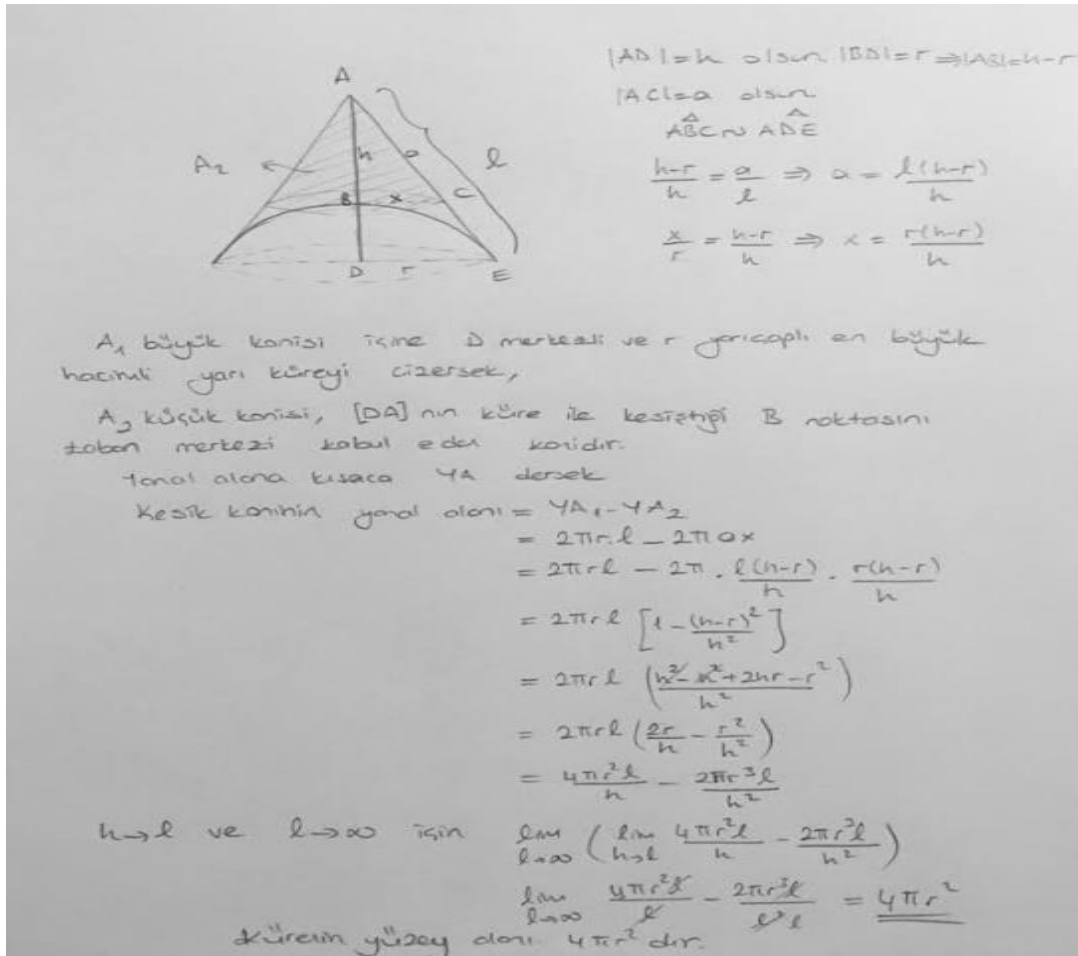 |AD|=h olsun |BD|=r ⇒|AB|=h-r
|AC|=a olsun
ABC ~ ADE
(h-r)/h = a/l ⇒ a = l(h-r)/h
x/r = (h-r)/h ⇒ x = r(h-r)/h
A
A₂
h
a
l
B
x
C
D
r
E
A₁ büyük konisi içine D merkezli ve r yarıçaplı en büyük
hacimli yarı küreyi çizersek,
A₂ küçük konisi, [DA] nın küre ile kesiştiği B noktasını
taban merkezi kabul eden konidir.
Yanal alana kısaca YA dersek
Kesik koninin yanal alanı = YA₁-YA₂
= 2πr.l - 2πax
= 2πrl - 2π . l(h-r)/h . r(h-r)/h
= 2πrl [1 - (h-r)²/h²]
= 2πrl ((h²-h²+2hr-r²)/h²)
= 2πrl (2r/h - r²/h²)
= 4πr²l/h - 2πr³l/h²
h→l ve l→∞ için lim l→∞ (lim h→l 4πr²l/h - 2πr³l/h²)
lim l→∞ 4πr²l/l - 2πr³l/l²l = 4πr²
Kürenin yüzey alanı 4πr² dır.